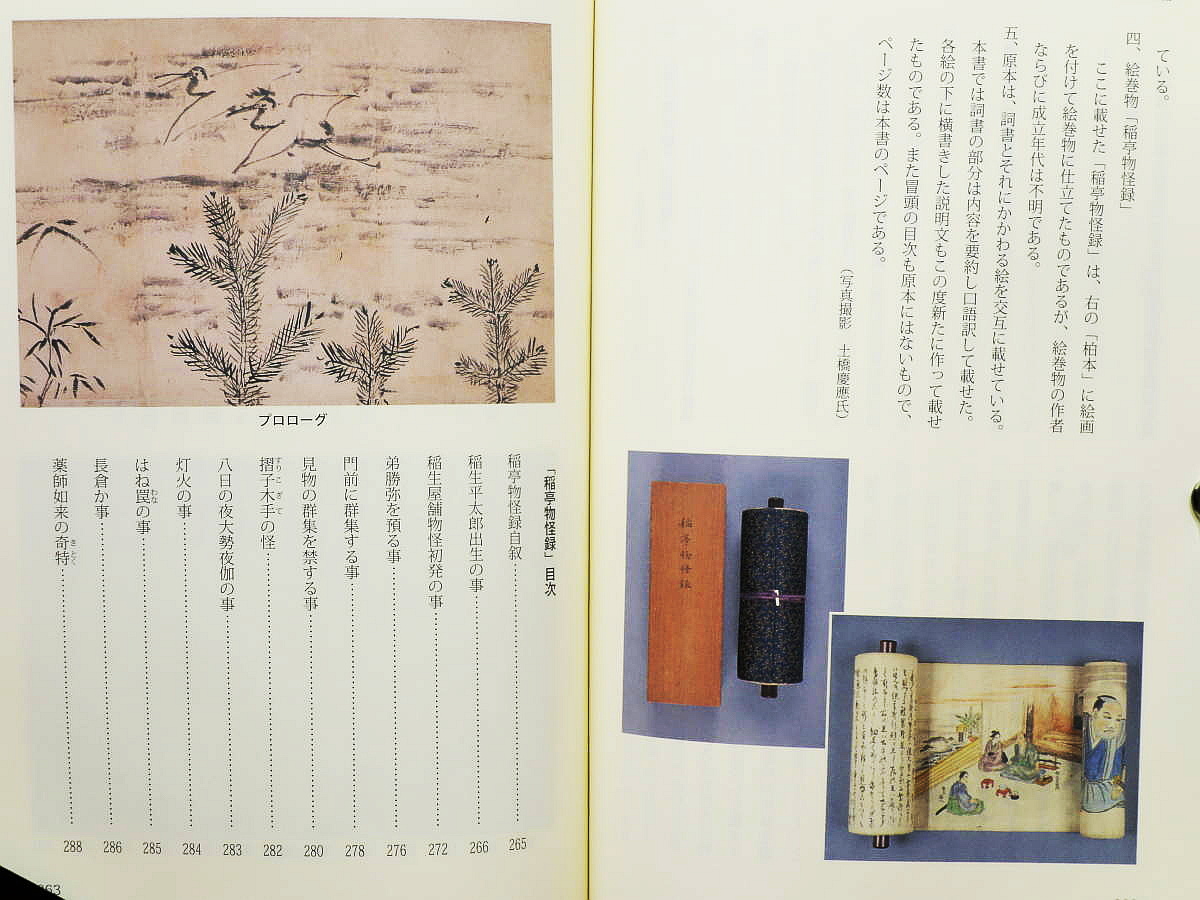 ている。
四、絵巻物「稲亭物怪録」
ここに載せた「稲亭物怪録」は、右の「柏本」に絵画
を付けて絵巻物に仕立てたものであるが、絵巻物の作者
ならびに成立年代は不明である。
五、原本は、詞書とそれにかかわる絵を交互に載せている。
本書では詞書の部分は内容を要約し口語訳して載せた。
各絵の下に横書きした説明文もこの度新たに作って載せ
たものである。また冒頭の目次も原本にはないもので、
ページ数は本書のページである。
(写真撮影 土橋慶應氏)
稲亭物怪録
プロローグ
「稲亭物怪録」目次
稲亭物怪録自叙……265
稲生平太郎出生の事……266
稲生屋舗物怪初発の事……272
弟勝弥を預る事……276
門前に群集する事……278
見物の群集を禁する事……280
摺子木手の怪……282
すりこぎて
八日の夜大勢夜伽の事……283
灯火の事……284
はね罠の事……285
わな
長倉か事……286
薬師如来の奇特……288
きとく